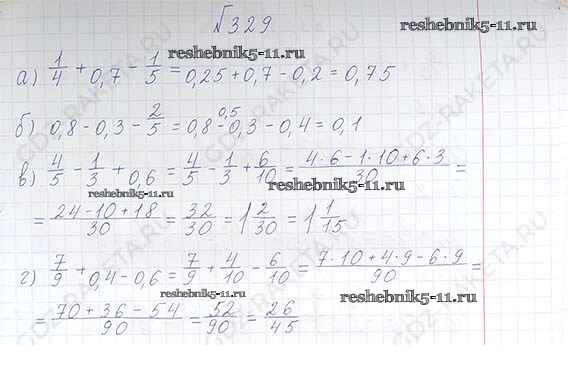 √329
reshebnik5-11.ru
reshebnik5-11.ru
а) 1/4 + 0,7 - 1/5 = 0,25 + 0,7 - 0,2 = 0,75
б) 0,8 - 0,3 - 2/5 = 0,8 - 0,3 - 0,4 = 0,1
0,5
в) 4/5 - 1/3 + 0,6 = 4/5 - 1/3 + 6/10 = (4·6 - 1·10 + 6·3)/30 =
reshebnik5-11.ru
reshebnik5-11.ru
= (24 - 10 + 18)/30 = 32/30 = 1 2/30 = 1 1/15
reshebnik5-11.ru
г) 7/9 + 0,4 - 0,6 = 7/9 + 4/10 - 6/10 = (7·10 + 4·9 - 6·9)/90 =
reshebnik5-11.ru
reshebnik5-11.ru
= (70 + 36 - 54)/90 = 52/90 = 26/45
GDZ-RAKETA.RU